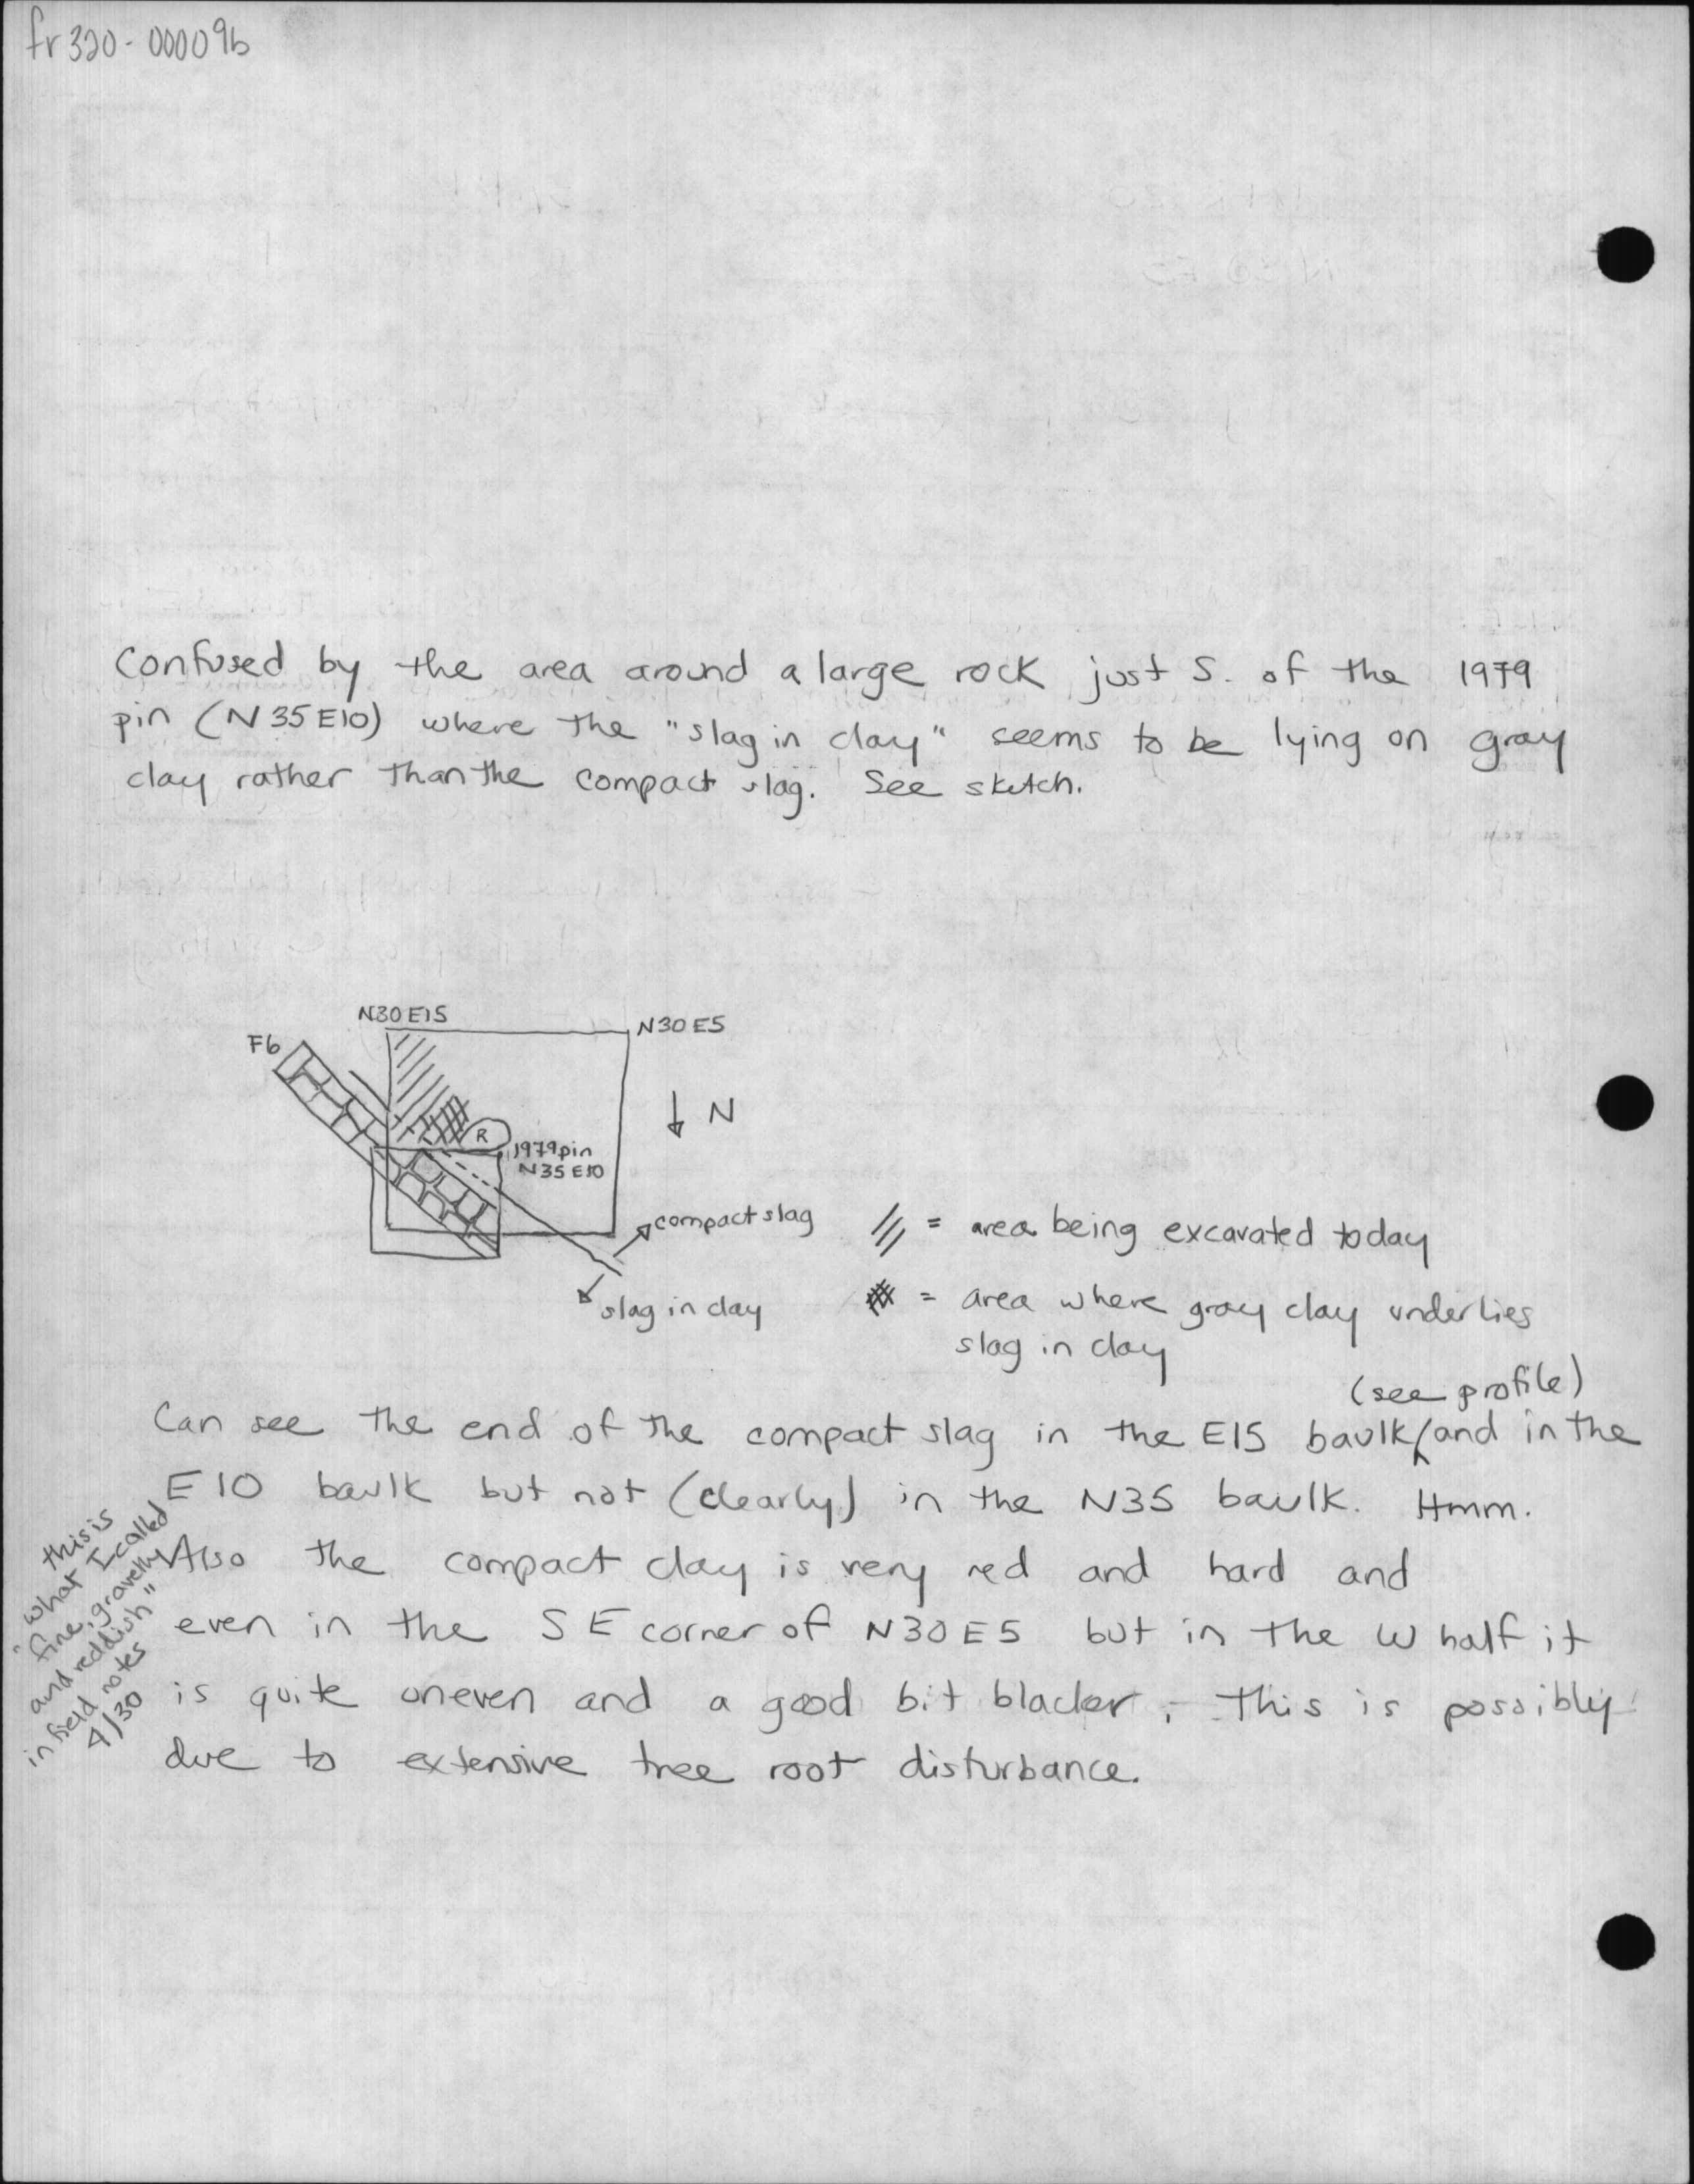 fr320-00009b
Confused by the area around a large rock just S. of the 1979
pin (N35E10) where the "slag in clay" seems to be lying on gray
clay rather than the compact slag. See sketch.
N30E15
N30E5
F6
N
R
1979 pin
N35E10
compact slag
slag in clay
= area being excavated today
= area where gray clay underlies
slag in clay
(see profile)
Can see the end of the compact slag in the E15 baulk and in the
E10 baulk but not (clearly) in the N35 baulk. Hmm.
Also the compact clay is very red and hard and
even in the SE corner of N30E5 but in the W half it
is quite uneven and a good bit blacker. This is possibly
due to extensive tree root disturbance.
this is
what I called
"fine, gravelly
and reddish"
in field notes
4/30